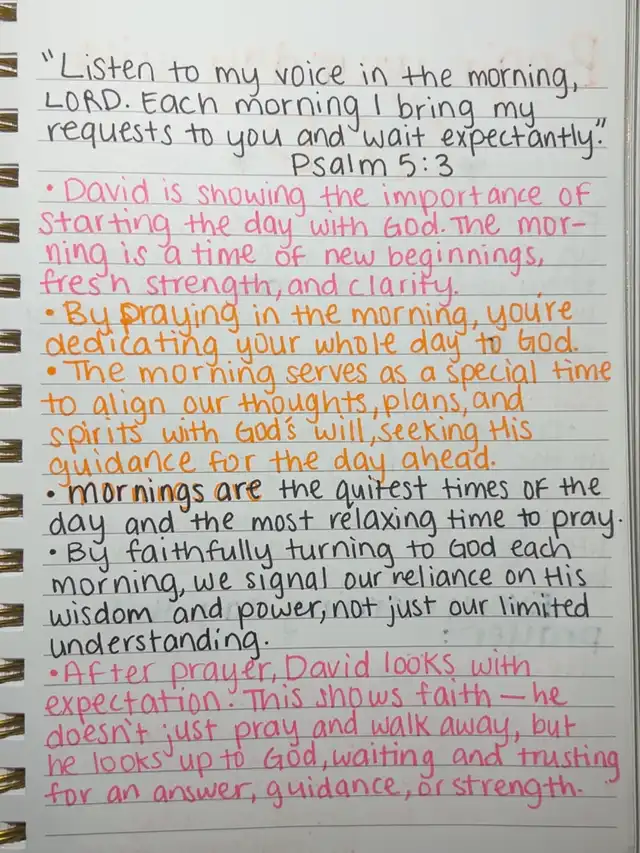 "Listen to my voice in the morning,
LORD. Each morning I bring my
requests to you and wait expectantly."
Psalm 5:3
• David is showing the importance of
starting the day with God. The mor-
ning is a time of new beginnings,
fresh strength, and clarity.
• By praying in the morning, you're
dedicating your whole day to God.
• The morning serves as a special time
to align our thoughts, plans, and
spirits with God's will, seeking His
guidance for the day ahead.
• mornings are the quitest times of the
day and the most relaxing time to pray.
• By faithfully turning to God each
morning, we signal our reliance on His
wisdom and power, not just our limited
understanding.
• After prayer, David looks with
expectation. This shows faith — he
doesn't just pray and walk away, but
he looks up to God, waiting and trusting
for an answer, guidance, or strength.